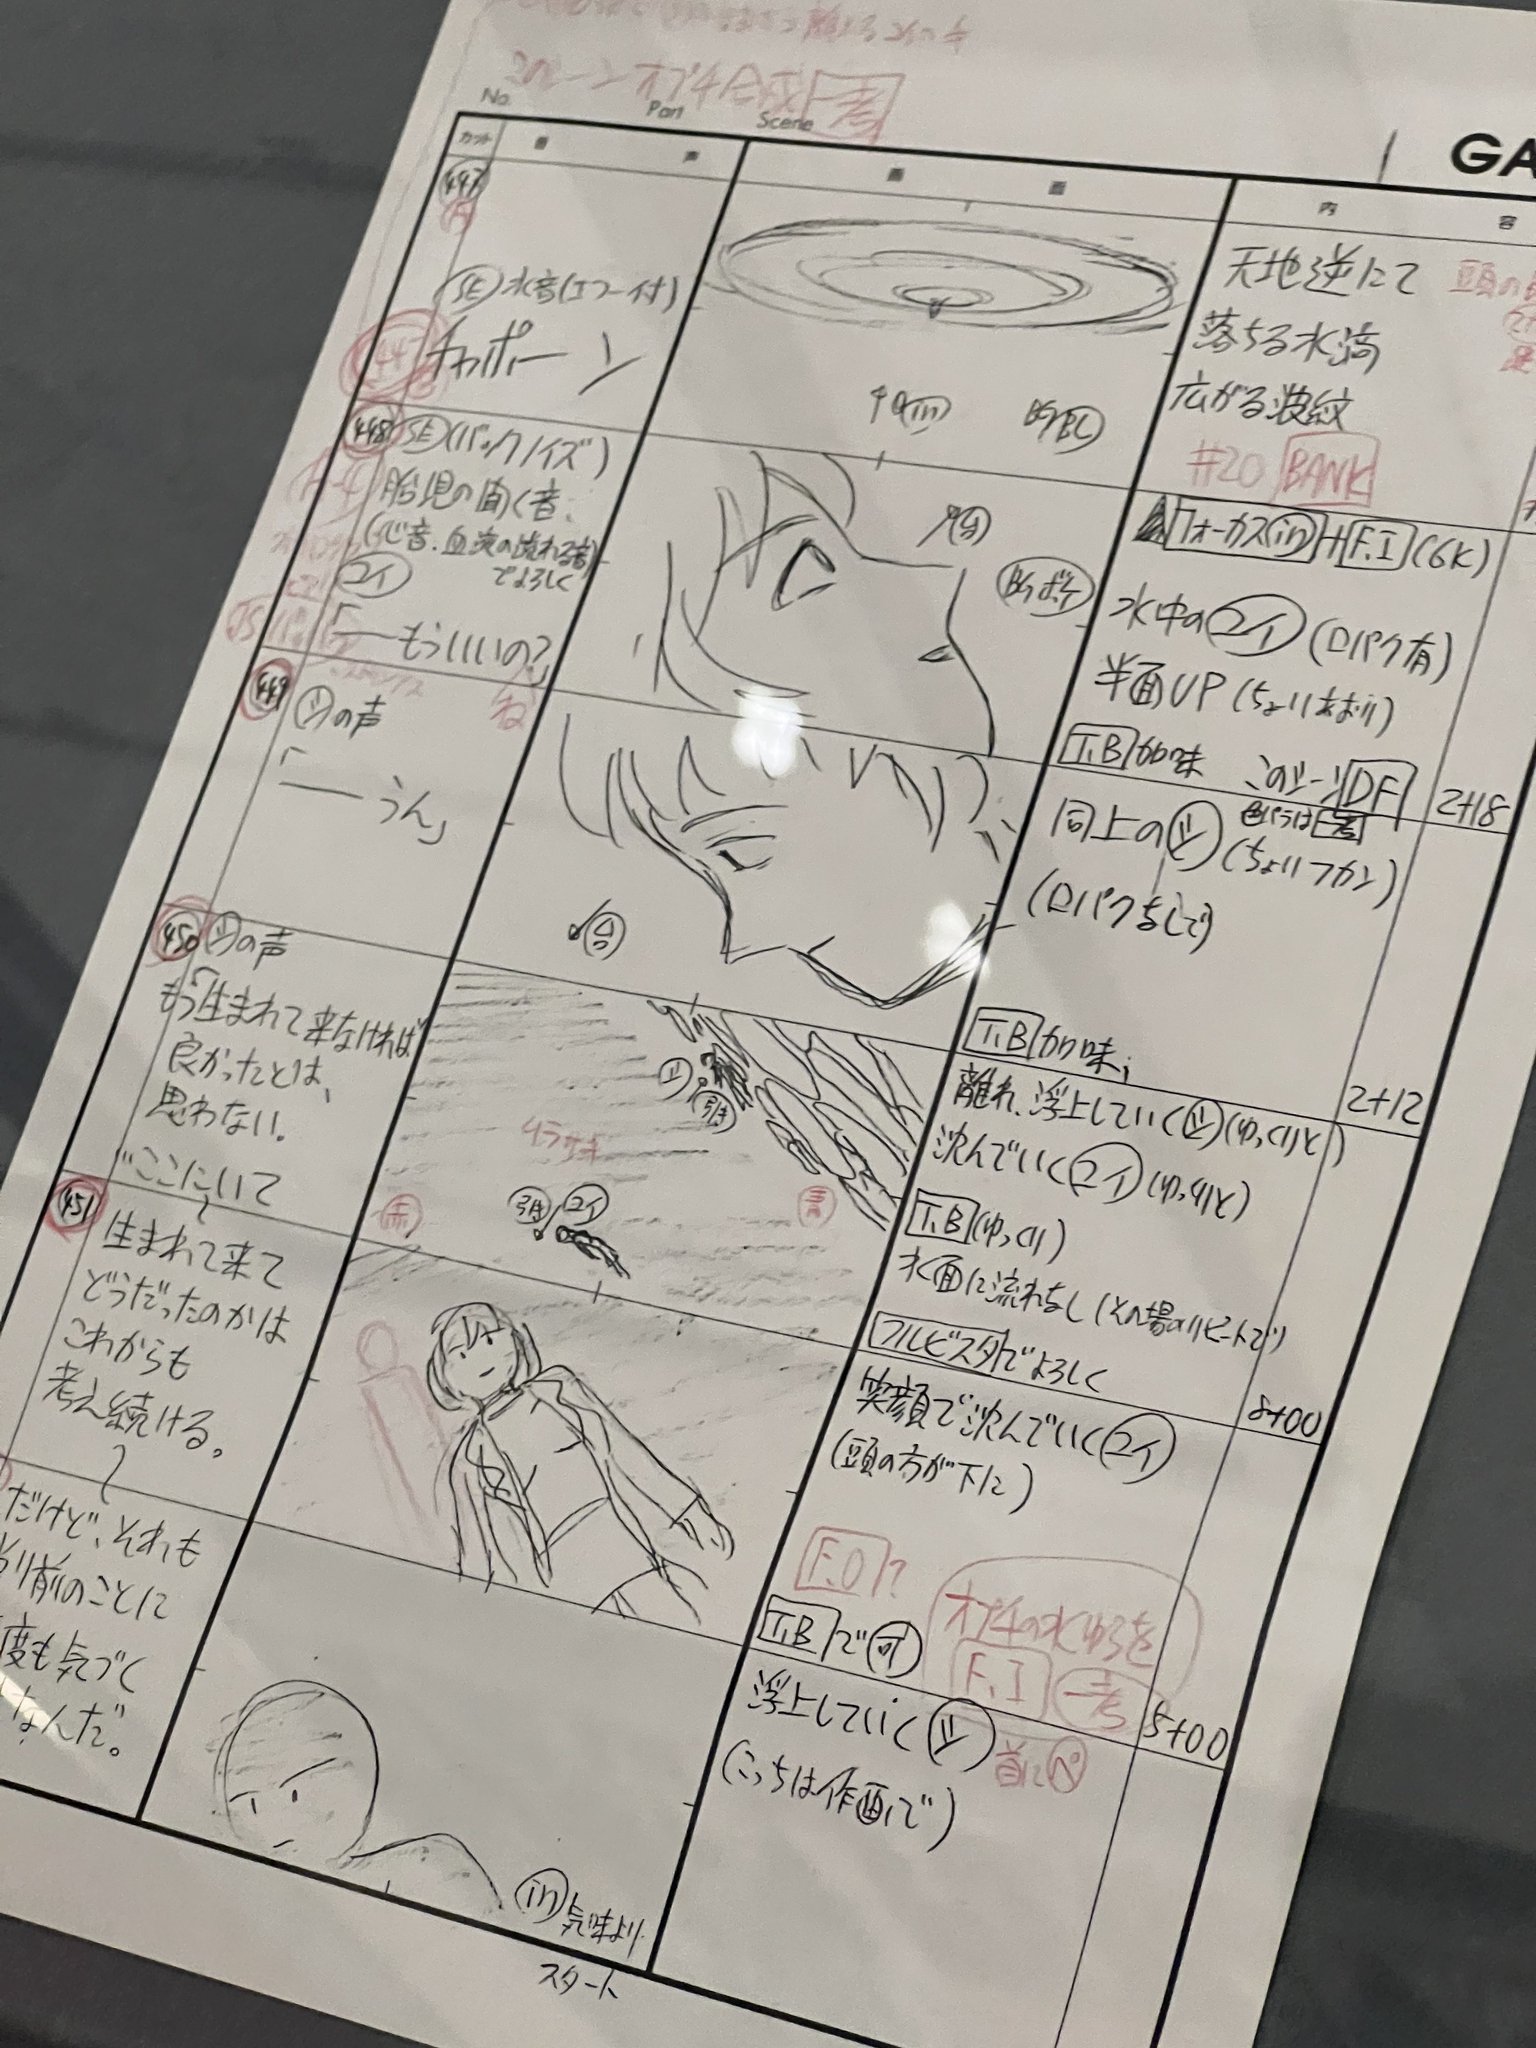 このシーン オプチ合成 一考
No.
Part
Scene
GA
カット
音
声
画
面
内
容
447
A
SE 水音(エコー付)
チャポーン
天地逆にて
落ちる水滴
広がる波紋
#20 BANK
448
SE(バックノイズ)
胎児の聞く音、
(心音、血液の流れる音)
でよろしく
ユイ
「──もういいの?」
ね
in
フォーカス in + F.I (6K)
水中のユイ(口パク有)
半面UP(ちょいあおり)
T.B 加味
このシーン DF
2+18
449
シの声
「── うん」
同上のシ(ちょいフカン)
(口パクなしで)
T.B 加味
2+12
450
シの声
もう生まれて来なければ
良かったとは、
思わない。
ムラサキ
シ
引き
赤
引き
ユイ
青
離れ、浮上していくシ(ゆっくりと)
沈んでいくユイ(ゆっくりと)
T.B(ゆっくり)
水面に流れなし(その場のリピートで)
フルビスタでよろしく
8+00
"ここにいて
451
生まれて来て
どうだったのかは
これからも
考え続ける。
笑顔で沈んでいくユイ
(頭の方が下に)
F.O?
オプチの水ゆらを
F.I 一考
T.B で可
5+00
だけど、それも
り前のことに
度も気づく
なんだ。
浮上していくシ
(こっちは作画で)
in 気味より
スタート